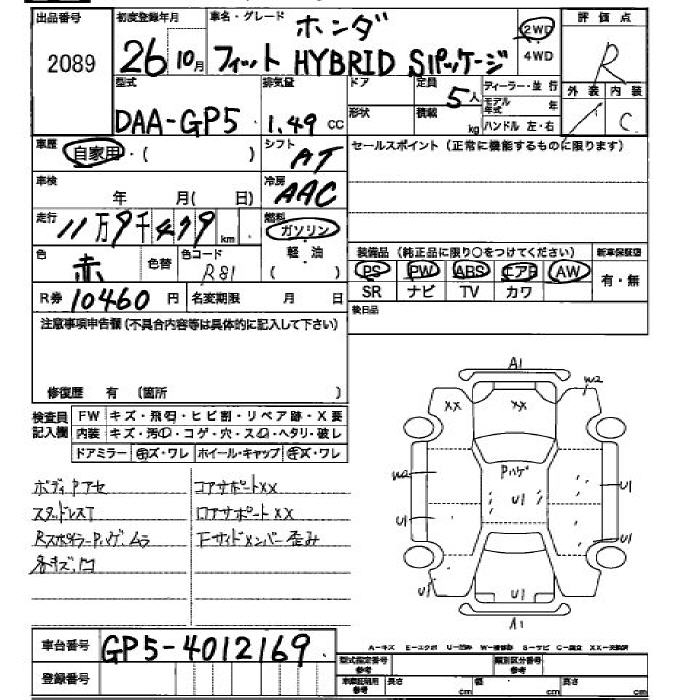 出品番号 初度登録年月 車名・グレード ホンダ 2WD 評価点
2089 26 10月 フィット HYBRID Sパッケージ 4WD R
型式 排気量 ドア 定員 5人 ディーラー・並行 外装 内装
DAA-GP5 1.49 CC 形状 積載 kg モデル年式 年 ハンドル 左・右 / C
車歴 自家用・( ) シフト AT セールスポイント (正常に機能するものに限ります)
車検 年 月( 日) 冷房 AAC
走行 11万9千479 km 燃料 ガソリン
軽・油
( )
色 赤 色替 色コード R81
装備品 (純正品に限り○をつけてください) 新車保証書
PS PW ABS エアB AW 有・無
SR ナビ TV カワ
R券 10460 円 名変期限 月 日 後日品
注意事項申告欄(不具合内容等は具体的に記入して下さい)
修復歴 有 (箇所 )
検査員記入欄 FW キズ・飛石・ヒビ割・リペア跡・X要
内装 キズ・汚れ・コゲ・穴・スレ・ヘタリ・破レ
ドアミラー キズ・ワレ ホイール・キャップ キズ・ワレ
ボディPアセ コアサポートXX
スタッドレスT ロアサポートXX
RスポイラーPハゲ、ムラ Fサイドメンバー歪み
各キズ、凹
A1
W2
XX XX
Pハゲ
W2 U1 U1
U1
U1 U1
A1
車台番号 GP5-4012169
登録番号
A−キズ E−エクボ U−凹み W−補修跡 S−サビ C−腐食 XX−交換済
型式指定番号 参考 類別区分番号 参考
車庫証明用 参考 長さ cm 幅 cm 高さ cm